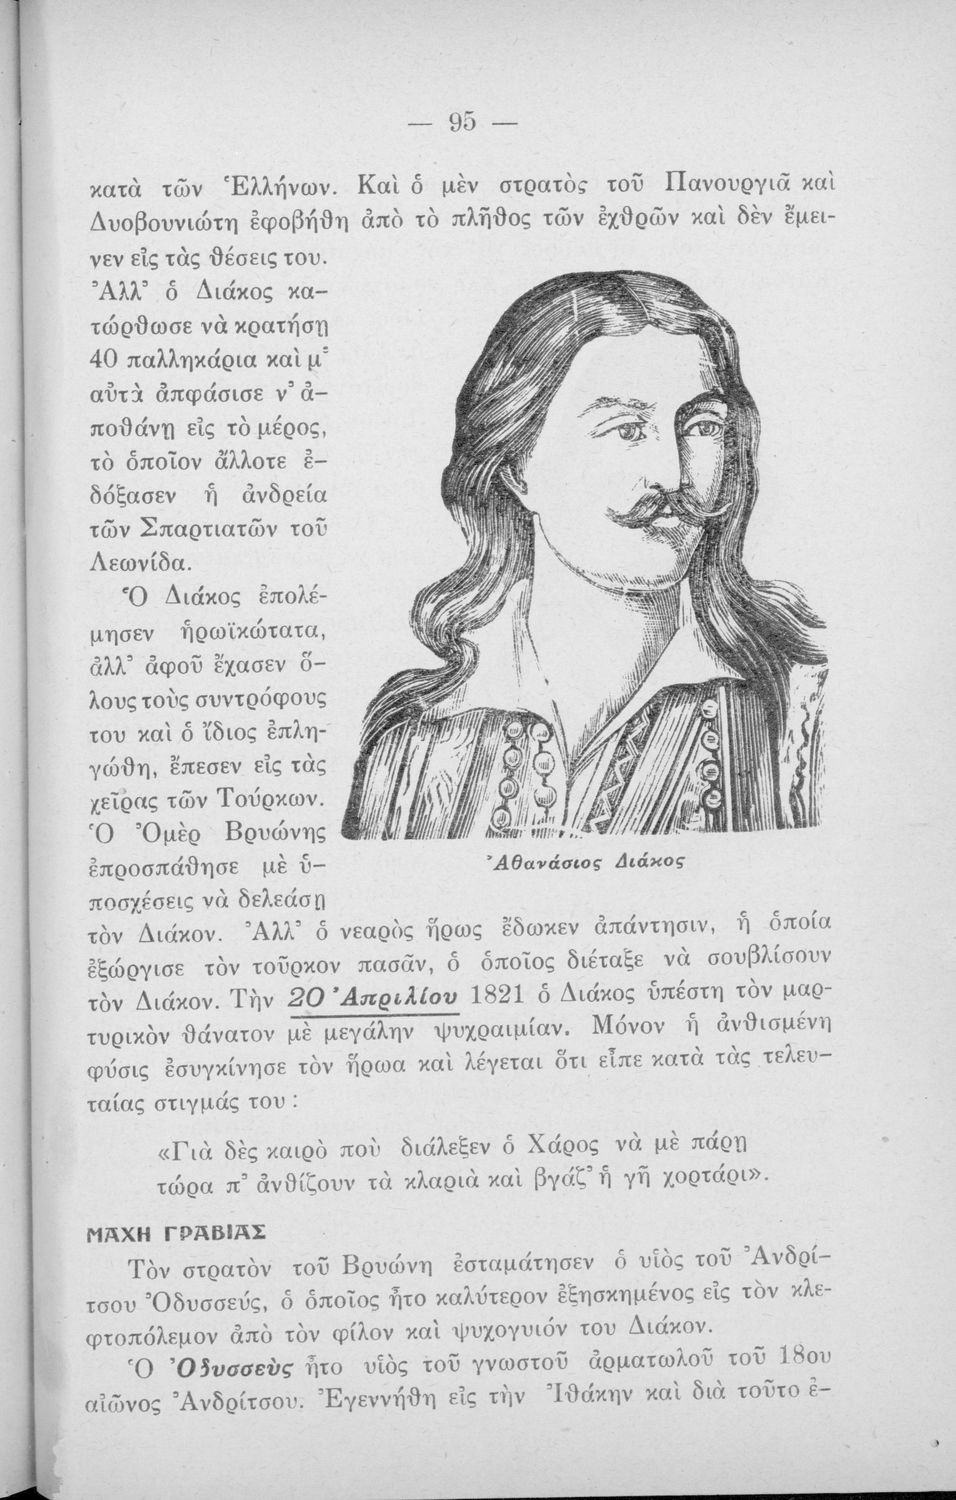 — 95 —
κατὰ τῶν Ἑλλήνων. Καὶ ὁ μὲν στρατὸς τοῦ Πανουργιᾶ καὶ
Δυοβουνιώτη ἐφοβήθη ἀπὸ τὸ πλῆθος τῶν ἐχθρῶν καὶ δὲν ἔμει-
νεν εἰς τὰς θέσεις του.
Ἀλλ᾽ ὁ Διάκος κα-
τώρθωσε νὰ κρατήσῃ
40 παλληκάρια καὶ μ᾽
αὐτὰ ἀπφάσισε ν᾽ ἀ-
ποθάνῃ εἰς τὸ μέρος,
τὸ ὁποῖον ἄλλοτε ἐ-
δόξασεν ἡ ἀνδρεία
τῶν Σπαρτιατῶν τοῦ
Λεωνίδα.
Ὁ Διάκος ἐπολέ-
μησεν ἡρωϊκώτατα,
ἀλλ᾽ ἀφοῦ ἔχασεν ὅ-
λους τοὺς συντρόφους
του καὶ ὁ ἴδιος ἐπλη-
γώθη, ἔπεσεν εἰς τὰς
χεῖρας τῶν Τούρκων.
Ὁ Ὀμὲρ Βρυώνης
ἐπροσπάθησε μὲ ὑ-
ποσχέσεις νὰ δελεάσῃ
Ἀθανάσιος Διάκος
τὸν Διάκον. Ἀλλ᾽ ὁ νεαρὸς ἥρως ἔδωκεν ἀπάντησιν, ἡ ὁποία
ἐξώργισε τὸν τοῦρκον πασᾶν, ὁ ὁποῖος διέταξε νὰ σουβλίσουν
τὸν Διάκον. Τὴν 20 Ἀπριλίου 1821 ὁ Διάκος ὑπέστη τὸν μαρ-
τυρικὸν θάνατον μὲ μεγάλην ψυχραιμίαν. Μόνον ἡ ἀνθισμένη
φύσις ἐσυγκίνησε τὸν ἥρωα καὶ λέγεται ὅτι εἶπε κατὰ τὰς τελευ-
ταίας στιγμάς του :
«Γιὰ δὲς καιρὸ ποὺ διάλεξεν ὁ Χάρος νὰ μὲ πάρῃ
τώρα π᾽ ἀνθίζουν τὰ κλαριὰ καὶ βγάζ᾽ ἡ γῆ χορτάρι».
ΜΑΧΗ ΓΡΑΒΙΑΣ
Τὸν στρατὸν τοῦ Βρυώνη ἐσταμάτησεν ὁ υἱὸς τοῦ Ἀνδρί-
τσου Ὀδυσσεύς, ὁ ὁποῖος ἦτο καλύτερον ἐξησκημένος εἰς τὸν κλε-
φτοπόλεμον ἀπὸ τὸν φίλον καὶ ψυχογυιόν του Διάκον.
Ὁ Ὀδυσσεὺς ἦτο υἱὸς τοῦ γνωστοῦ ἁρματωλοῦ τοῦ 18ου
αἰῶνος Ἀνδρίτσου. Ἐγεννήθη εἰς τὴν Ἰθάκην καὶ διὰ τοῦτο ἐ-